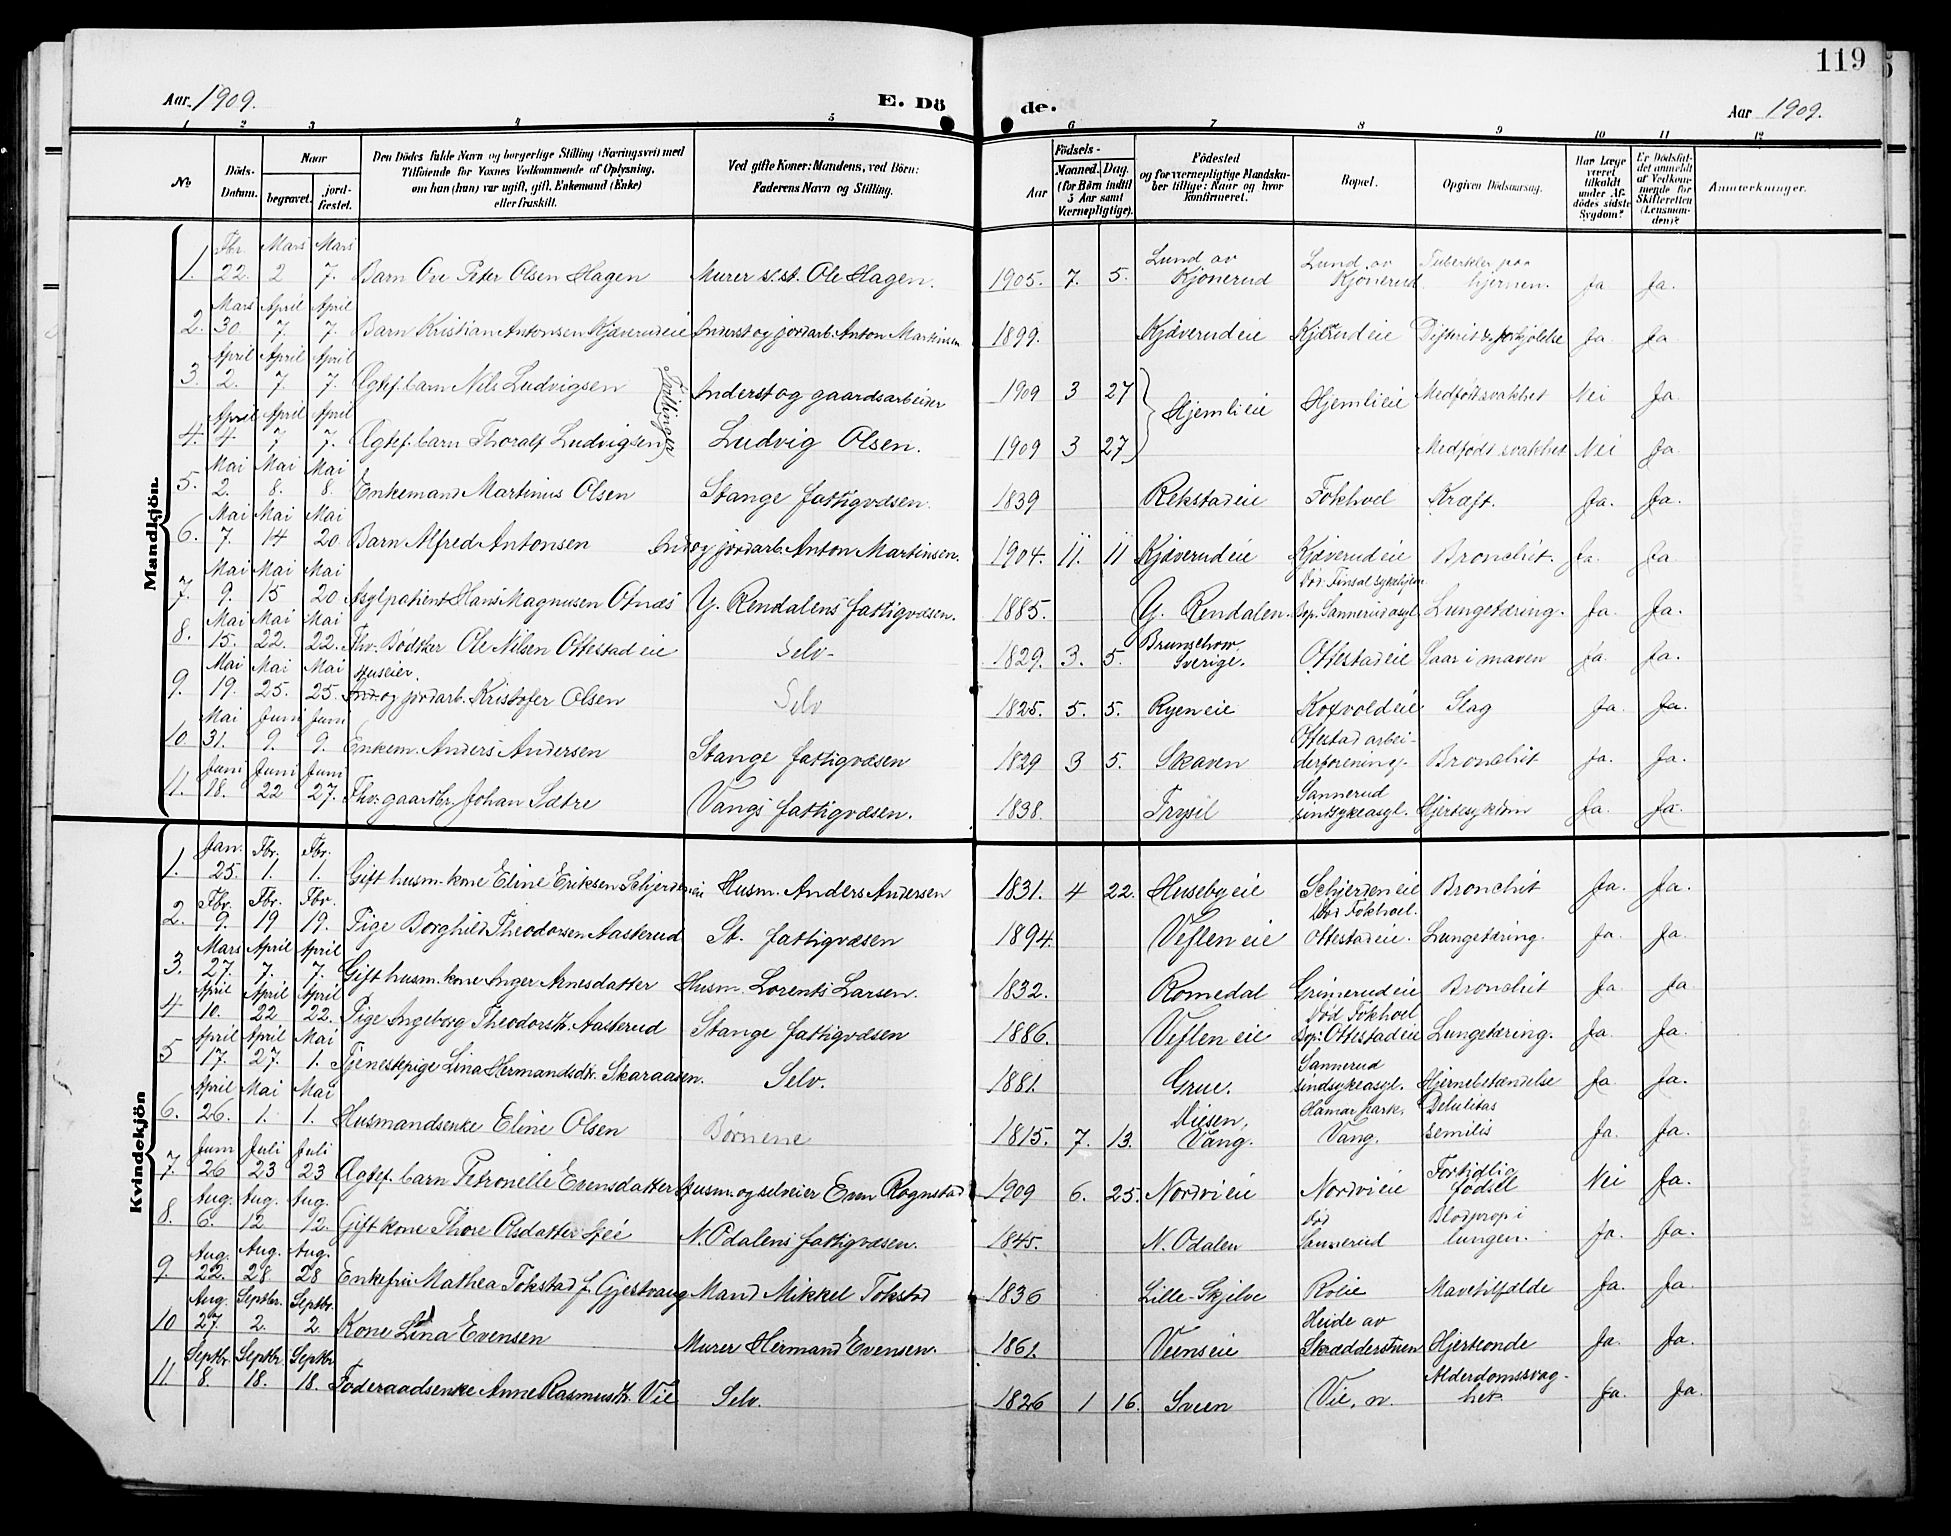 119
Aar 1909. E. Dö de. Aar 1909.
1 2 3 4 5 6 7 8 9 10 11 12
No. Döds-Datum. Naar begravet. jordfæstet. Den Dödes fulde Navn og borgerlige Stilling (Næringsvei) med Tilföiende for Voxnes Vedkommende af Oplysning, om han (hun) var ugift, gift, Enkemand (Enke) eller fraskilt. Ved gifte Koner: Mandens, ved Börn: Faderens Navn og Stilling. Födsels- Aar Maaned. Dag. (for Börn indtil 5 Aar samt Værnepligtige). Födested og for værnepligtige Mandskaber tillige: Naar og hvor konfirmeret. Bopæl. Opgiven Dödsaarsag. Har Læge været tilkaldt under Afdödes sidste Sygdom? Er Dödsfaldet anmeldt af Vedkommende for Skifteretten (Lensmanden)? Anmærkninger.
Mandkjön.
1. Fbr. 22. Mars 2 Mars 7. Barn Ove Peter Olsen Hagen Murer s. st. Ole Hagen. 1905. 7. 5. Lund av Kjønerud Lund av Kjønerud Tuberkler paa hjernen. Ja Ja.
2. Mars 30. April 7. April 7. Barn Kristian Antonsen Kjæverudeie Inderst og jordarb. Anton Martinsen 1899. Kjæverudeie Kjærudeie Difterit & forkjølelse Ja. Ja
3. April 2. April 7. April 7. Ægtef. barn Nils Ludvigsen Tvillinger Inderst og gaardsarbeider 1909 3 27 Hjemlieie Hjemlieie Medfødt svakhet Nei Ja.
4. April 4. April 7 April 7. Ægtef. barn Thoralf Ludvigsen Ludvig Olsen. 1909 3 27 Medfødt svakhet Nei Ja.
5. Mai 2. Mai 8. Mai 8. Enkemand Martinus Olsen Stange fattigvæsen. 1839 Rekstadeie Fokhoel Kræft. Ja. Ja.
6. Mai 7. Mai 14 Mai 20. Barn Alfred Antonsen Ind. og jordarb. Anton Martinsen. 1904. 11. 11 Kjæverudeie Kjæverudeie Bronchit. Ja. Ja
7. Mai 9. Mai 15 Mai 20 Asylpatient Hans Magnusen Otnæs Y. Rendalens fattigvæsen. 1885. Y. Rendalen. Død Finsal sykehjem Bop. Sannerud asyl. Lungetæring. Ja. Ja.
8. Mai 15. Mai 22. Mai 22. Fhv. Bødtker Ole Nilsen Ottestadeie Selv. 1829. 3. 5. Brunschow, Sverige. Ottestadeie Saar i maven Ja. Ja.
9. Mai 19. Mai 25. Mai 25. Huseier og jordarb. Kristofer Olsen Selv 1825. 5. 5. Ryeneie Kofvoldeie Slag Ja. Ja.
10 Mai 31. Juni 9. Juni 9. Enkem. Anders Andersen Stange fattigvæsen 1829 3 5. Skaven Ottestad arbeiderforening. Bronchit Ja. Ja.
11. Juni 18. Juni 22 Juni 27. Fhv. gaardbr. Johan Sætre Vangs fattigvæsen. 1838. Trysil Sannerud sindsykeasyl. Hjertesykdom Ja. Ja.
Kvindekjön
1. Jan. 25. Fbr. 1. Fbr. 1. Gift husm. kone Eline Eriksen Schjerdeneie Husm. Anders Andersen 1831. 4 22. Husebyeie Schjerdeneie Bronchit Ja. Ja.
2. Fbr. 9. Fbr. 19 Fbr. 19. Pige Borghild Theodorsen Aasterud St. fattigvæsen 1894. Vefleneie Død Fokhoel. Ottestadeie. Lungetæring. Ja. Ja.
3. Mars 27. April 7. April 7. Gift husm. kone Inger Arnesdatter Husm. Lorents Larsen. 1832. Romedal Grimerudeie Bronchit Ja Ja
4 April 10. April 22 April 22. Pige Ingeborg Theodorsdtr. Aasterud Stange fattigvæsen 1886. Vefleneie Død Fokhoel Bop: Ottestadeie Lungetæring. Ja. Ja.
5 April 17. April 27. Mai 1. Tjenestepige Lina Hermandsdtr. Skaraasen. Selv. 1881. Grue. Sannerud sindsykeasyl. Hjernebetændelse Ja Ja.
6. April 26. Mai 1. Mai 1. Husmandsenke Eline Olsen Børnene 1815. 7. 13. Diesen, Vang. Hamar park, Vang. Debilitas semilis Ja. Ja.
7. Juni 26 Juli 23 Juli 23 Ægtef. barn Petronelle Evensdatter Husm. og selveier Even Rognstad 1909 6. 25. Nordvieie Nordvieie Fortidlig fødsel Nei Ja.
8. Aug. 6. Aug. 12 Aug. 12. Gift kone Thore Olsdatter N. Odalens fattigvæsen. 1845. N. Odalen Død Sannerud Blodprop i lungen. Ja. Ja.
9 Aug. 22. Aug. 28 Aug. 28 Enkefru Mathea Tokstad f. Gjestvang Mand Mikkel Tokstad 1836 Lille-Skjelve Rolie Mavetilfælde Ja. Ja.
10 Aug. 27. Septbr. 2. Septbr. 2 Kone Lina Evensen Murer Herman Evensen. 1861. Veenseie Heide av Skrædderstuen Hjerteonde Ja. Ja.
11. Septbr. 8. Septbr. 18. Septbr. 18. Foderaadsenke Anne Rasmusdtr. Vie Selv. 1826 1 16. Sveen Vie, n. Alderdomssvaghet Ja. Ja.